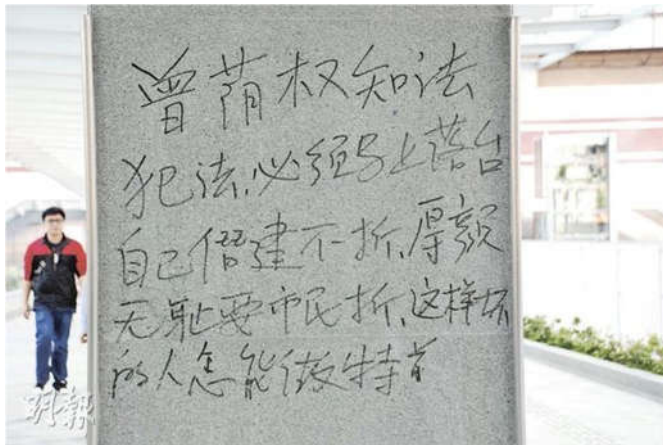 曾荫权知法
犯法、必须马上落台
自己僭建不拆、厚颜
无耻要市民拆、这样坏
的人怎能做特首
明報